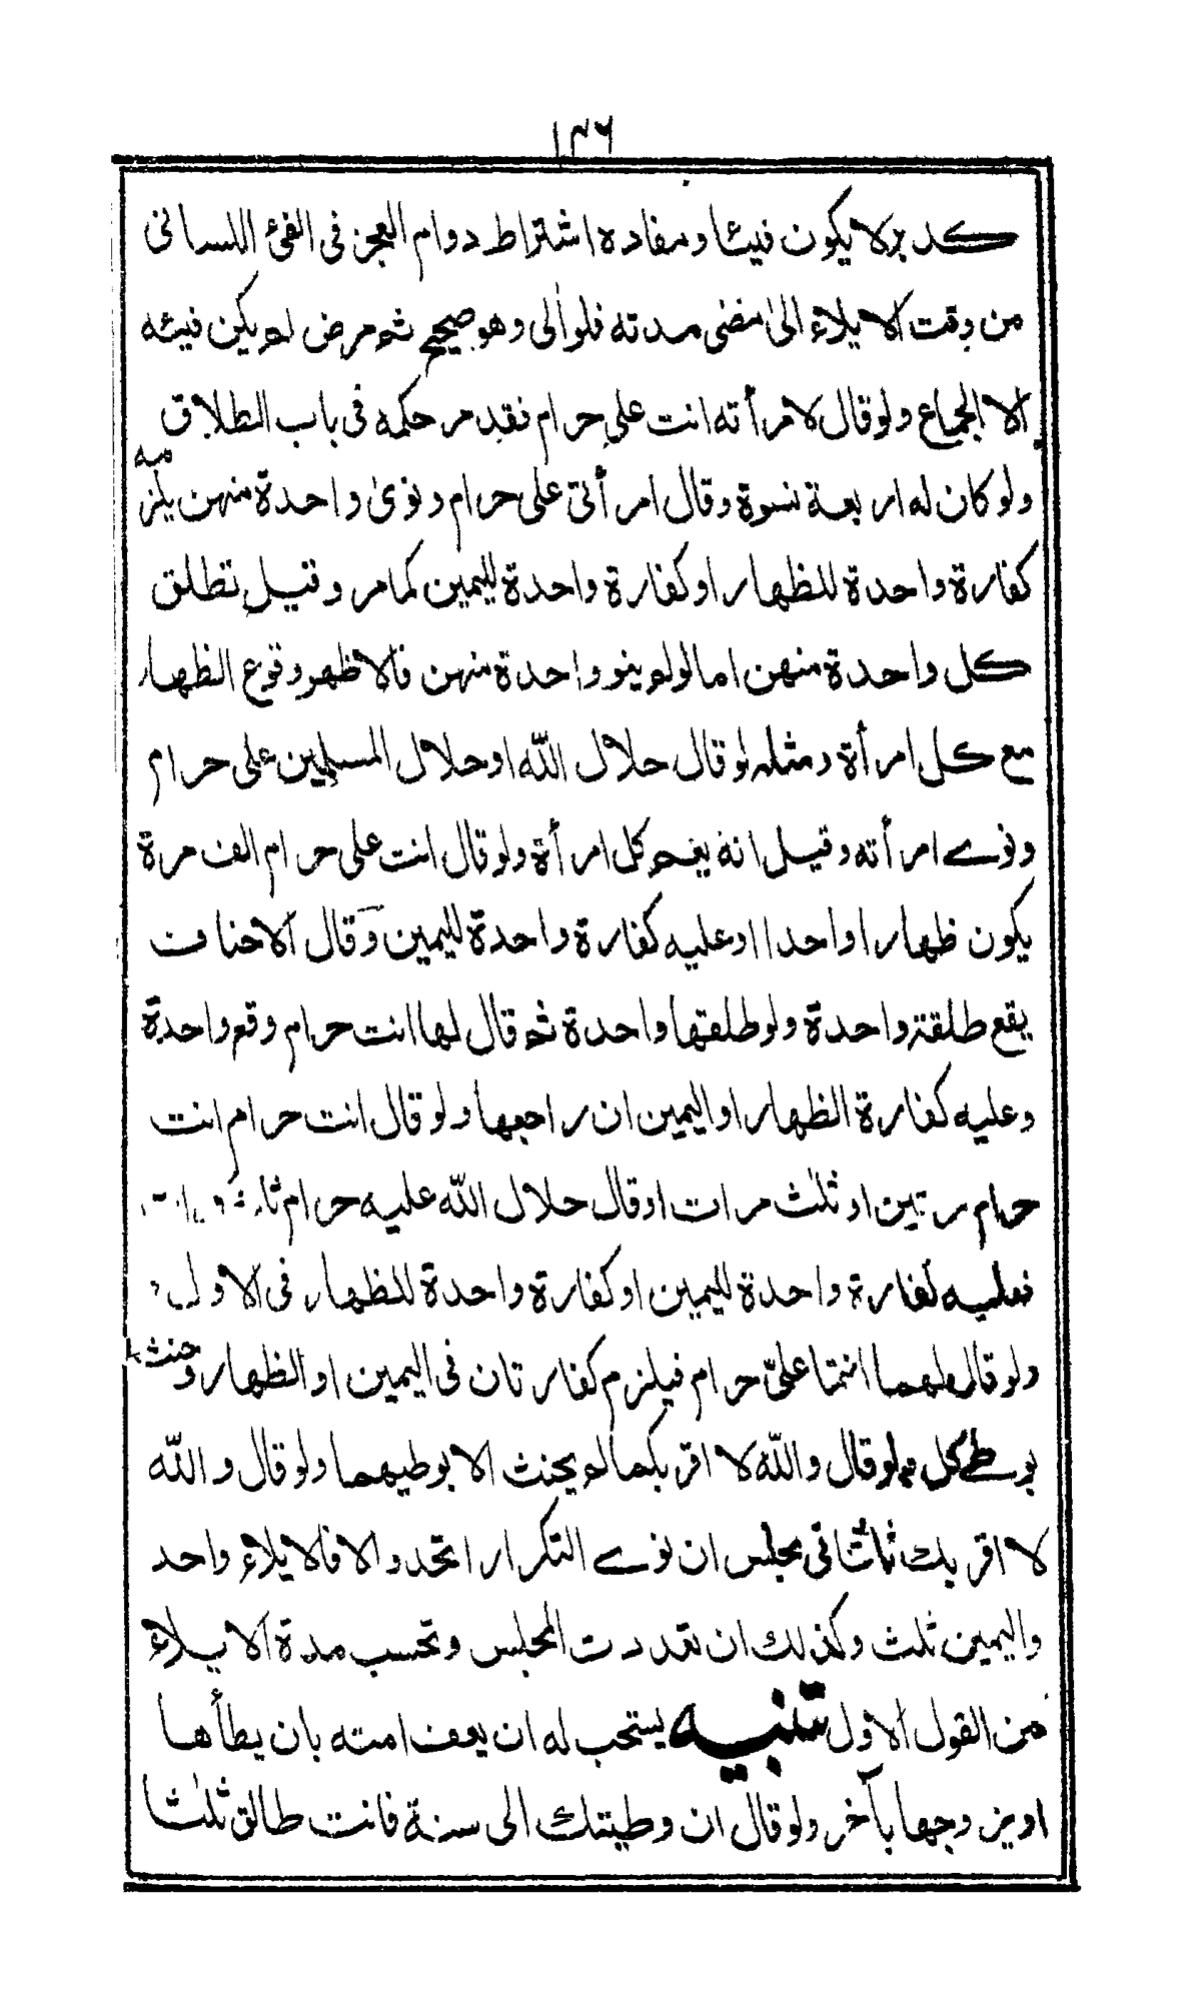 ١٣٦
كد برلا يكون فيئا ومفاده اشتراط دوام العجز فى الفئ اللسانى
من وقت الايلاء الىٰ مضى مدته فلو اٰلى وهو صحيح ثم مرض لم يكن فيئه
الا الجماع ولو قال لامرأته انت على حرام فقد مر حكمه فى باب الطلاق
ولو كان له اربعة نسوة وقال امرأتى على حرام ونوىٰ واحدة منهن يلزمه
كفارة واحدة للظهار او كفارة واحدة لليمين كما مر وقيل تطلق
كل واحدة منهن اما لو لم ينو واحدة منهن فالاظهر وقوع الظهار
مع كل امرأة ومثله لو قال حلال الله او حلال المسلمين على حرام
ونوے امرأته وقيل انه يعم كل امرأة ولو قال انت على حرام الف مرة
يكون ظهارا واحدا او عليه كفارة واحدة لليمين وقال الاحناف
يقع طلقة واحدة ولو طلقها واحدة ثم قال لها انت حرام وقع واحدة
وعليه كفارة الظهار او اليمين ان راجعها ولو قال انت حرام انت
حرام مرتين او ثلٰث مرات او قال حلال الله عليه حرام
فعليه كفارة واحدة لليمين او كفارة واحدة للظهار فى الاول
ولو قال لهما انتما علىّ حرام فيلزم كفارتان فى اليمين او الظهار وحنث
بوطے كل ولو قال والله لا اقربكما لم يحنث الا بوطيهما ولو قال والله
لا اقربك ثلٰثا فى مجلس ان نوے التكرار اتحد والا فالايلاء واحد
واليمين ثلث وكذلك ان تعددت المجلس وتحسب مدة الايلاء
من القول الاول تنبيه يستحب له ان يعف امته بان يطأها
او يزوجها بآخر ولو قال ان وطيتك الى سنة فانت طالق ثلٰثا